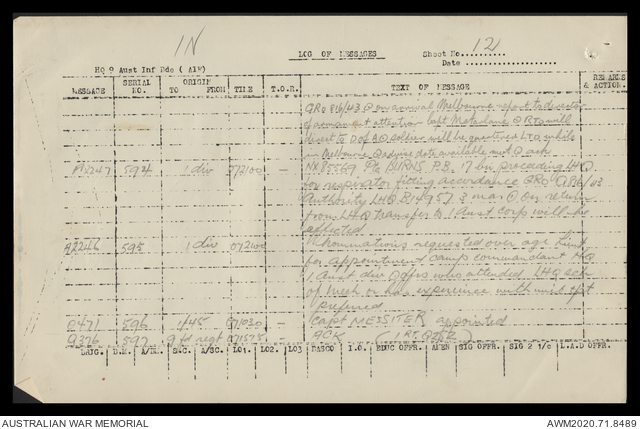 IN
LOG OF MESSAGES
Sheet No. 12
Date
HQ 9 Aust Inf Bde ( AIF )
MESSAGE SERIAL NO. ORIGIN TO FROM TIME T.O.R. TEXT OF MESSAGE REMARKS & ACTION.
GRO 86/43 on arrival Melbourne report to director
of attention capt @ RTO will
direct to D of A @ soldier will be quartered LTD whilst
in Melbourne @ advise date available unit @ ack
247 594 1 div 072100 NX85569 Pte BURNS P.B. 17 bn proceeding LHQ
on respirator fitting accordance GRO A86/43
authority LHQ 14957 3 mar @ on return
from LHQ transfer to 1 Aust Corp will be
effected
2246 595 1 div 072100 Nominations requested over age
for appointment camp commandant HQ
1 Aust div @ offrs who attended LHQ sch
of mech or has experience with tpt
preferred
0471 596 1/45 071030 — Capt MESSITER appointed
9376 597 9 fd regt 071575
ORIG. D.R. A/DR. S.C. A/SC. LO1. LO2. LO3 DASCO I.O. EDUC OFFR. AMEN SIG OFFR. SIG 2 i/c L.A.D OFFR.
AUSTRALIAN WAR MEMORIAL
AWM2020.71.8489